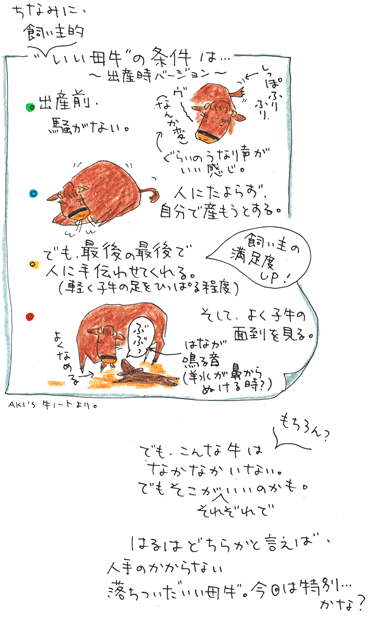 ちなみに、
飼い主的
"いい母牛"の条件は…
～出産時バージョン～
出産前、
騒がない。
しっぽふりふり
ヴー
(なんか変)
ぐらいのうなり声が
いい感じ。
人にたよらず、
自分で産もうとする。
でも、最後の最後で
人に手伝わせてくれる。
(軽く子牛の足をひっぱる程度)
飼い主の
満足度
UP!
そして、よく子牛の
面倒を見る。
よくなめる
ぶぶぅ
はなが
鳴る音
(羊水が鼻から
ぬける時?)
AKI'S 牛ノートより。
もちろん?
でも、こんな牛は
なかなかいない。
でもそこがいいのかも。
それぞれで
はるはどちらかと言えば、
人手のかからない
落ちついだいい母牛。今回は特別…
かな?